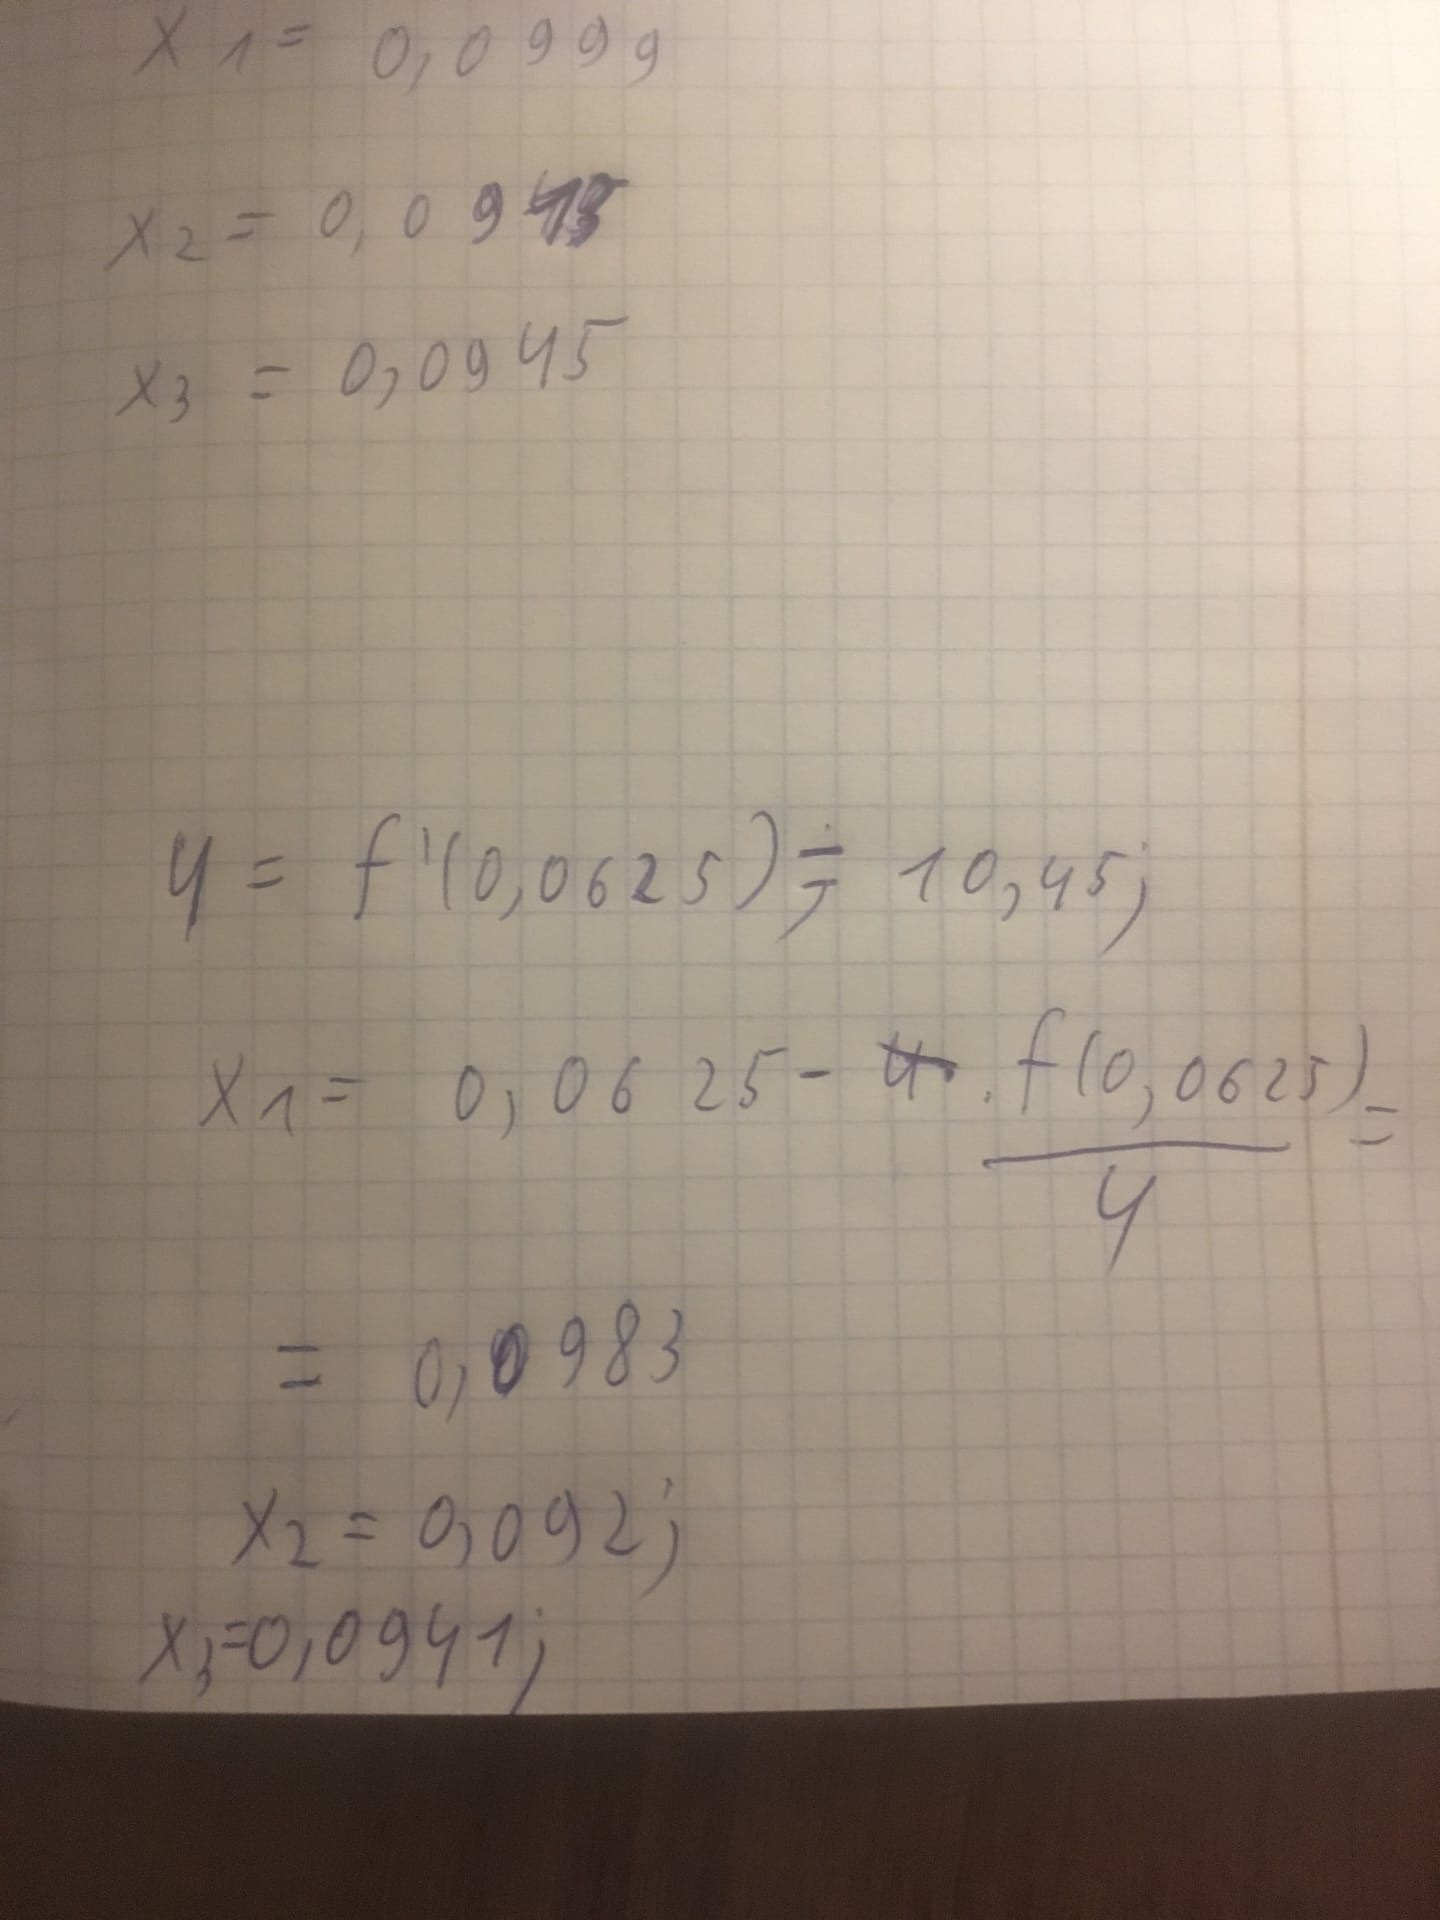 x1 = 0,0999
x2 = 0,0945
x3 = 0,0945
y = f'(0,0625) = 10,45;
x1 = 0,0625 - f(0,0625)/y =
= 0,0983
x2 = 0,092;
x3 = 0,0941;